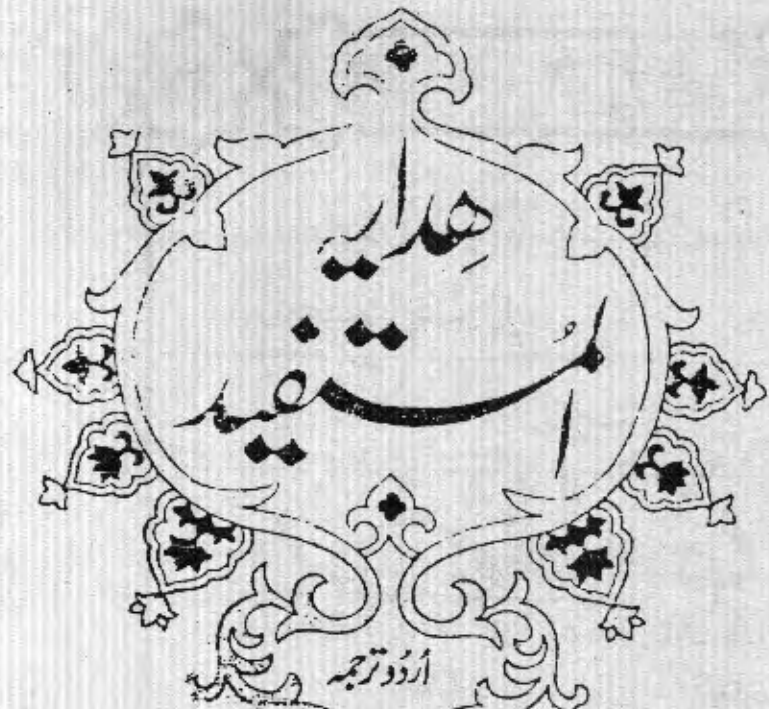 هِدایۃ
المُستفید
اُردُو ترجمہ